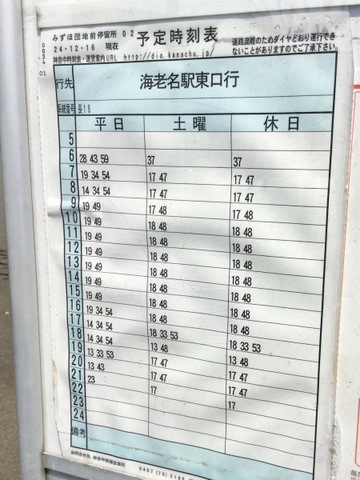 みずほ団地前停留所 02 予定時刻表
24-12-16 現在
神奈中時刻表・運賃案内URL http://dia.kanachu.jp/
道路混雑のためダイヤどおり運行でき
ないことがありますのでご了承下さい。
0054 01
行先 海老名駅東口行
系統番号 長16
平日 土曜 休日
5
6 28 43 59 37 37
7 19 34 54 17 47 17 47
8 14 34 54 17 47 17 47
9 19 49 17 48 17 48
10 19 49 17 48 17 48
11 19 49 18 48 18 48
12 19 49 18 48 18 48
13 19 49 18 48 18 48
14 19 49 18 48 18 48
15 19 49 18 48 18 48
16 19 34 54 18 48 18 48
17 14 34 54 18 48 18 48
18 14 34 54 18 33 53 18 33 53
19 13 33 53 13 48 13 48
20 13 43 17 47 17 47
21 23 17 47 17 47
22 17 17
23
24
備考